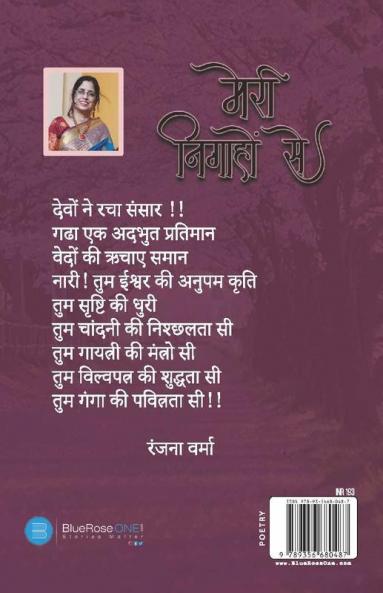 मेरी
निगाहों से
देवों ने रचा संसार !!
गढा एक अदभुत प्रतिमान
वेदों की ऋचाए समान
नारी! तुम ईश्वर की अनुपम कृति
तुम सृष्टि की धुरी
तुम चांदनी की निश्छलता सी
तुम गायत्री की मंत्रो सी
तुम विल्वपत्र की शुद्धता सी
तुम गंगा की पवित्रता सी!!
रंजना वर्मा
BlueRoseONE
Stories Matter
POETRY
INR 193
ISBN 978-93-5668-048-7
9 789356 680487
www.BlueRoseOne.com